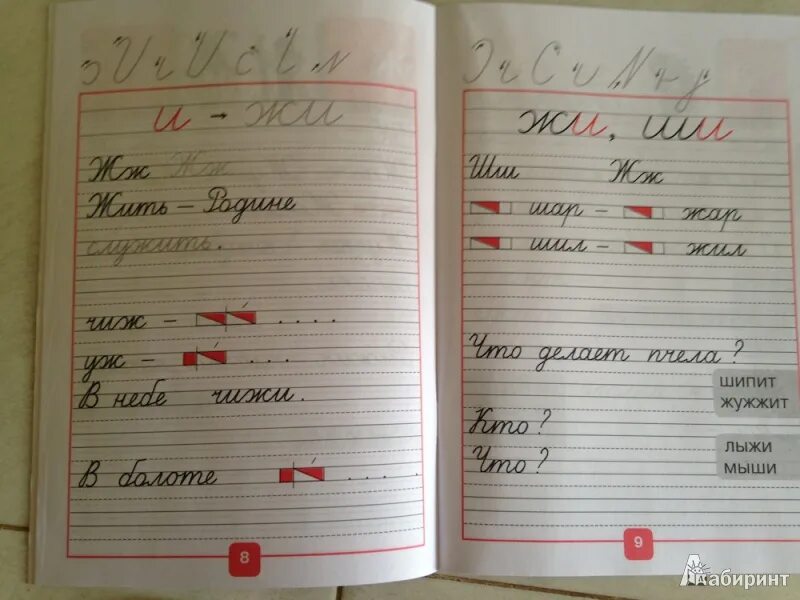 и → жи
Жж Жж
Жить – Родине
служить.
чиж –
уж –
В небе чижи.
В болоте
8
жи, ши
Шш Жж
шар – жар
шил – жил
Что делает пчела?
шипит
жужжит
Кто?
Что?
лыжи
мыши
9
Лабиринт